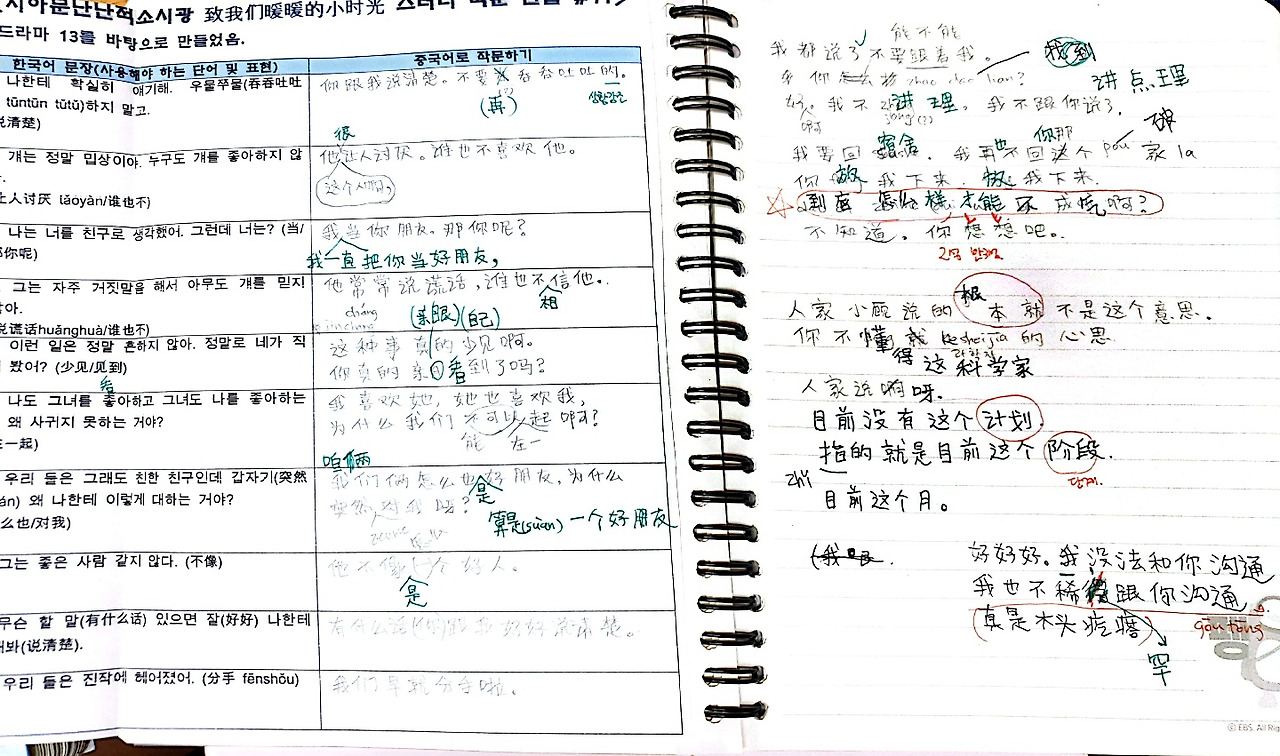 시아문난난적소시광 致我们暖暖的小时光 스터디
드라마 13를 바탕으로 만들었음.
한국어 문장(사용해야 하는 단어 및 표현)
중국어로 작문하기
나한테 확실히 얘기해. 우물쭈물(吞吞吐吐
tūntūn tǔtǔ)하지 말고.
说清楚)
你跟我说清楚。不要 吞吞吐吐的。
(再)
걔는 정말 밉상이야. 누구도 걔를 좋아하지 않
让人讨厌 tǎoyàn/谁也不)
很
他让人讨厌。谁也不喜欢他。
나는 너를 친구로 생각했어. 그런데 너는? (当/
那你呢)
我当你朋友。那你呢?
我一直把你当好朋友,
그는 자주 거짓말을 해서 아무도 걔를 믿지
않아.
说谎话huǎnghuà/谁也不)
他常常说谎话,谁也不信他。
相
cháng
(亲眼)(自己)
이런 일은 정말 흔하지 않아. 정말로 네가 직
봤어? (少见/见到)
看
这种事真的少见啊。
你真的亲自看到了吗?
나도 그녀를 좋아하고 그녀도 나를 좋아하는
왜 사귀지 못하는 거야?
在一起)
我喜欢她,她也喜欢我,
为什么我们不可以起啊?
能 在一
우리 둘은 그래도 친한 친구인데 갑자기(突然
왜 나한테 이렇게 대하는 거야?
么也/对我)
咱俩
我们俩怎么也好朋友,为什么
是
突然对我
算是(suàn)一个好朋友
그는 좋은 사람 같지 않다. (不像)
他不像一个好人。
是
무슨 할 말(有什么话) 있으면 잘(好好) 나한테
해봐(说清楚).
有什么话 跟我好好说清楚。
우리 둘은 진작에 헤어졌어. (分手 fēnshǒu)
我们早就分手啦。
能不能
我都说了不要跟着我。
找到
你怎么 zhao dao lian?
讲点理
好。我不 讲理。我不跟你说了,
啊
宿舍 也 你那 破
我要回 。我再不回这个 pou 家 la
你放我下来.放我下来.
到底怎么样才能不成院啊?
不知道。你想想吧。
人家小顾说的根本就不是这个意思。
你不懂我 kesheijia 的心思
得这科学家
과학자
人家说啊呀.
目前没有这个计划.
指的就是目前这个阶段.
zhǐ
단계.
目前这个月。
好好好。我没法和你沟通
我也不稀 跟你沟通。
(真是木头疙瘩)
gōu tōng
罕
© EBS. All Rig